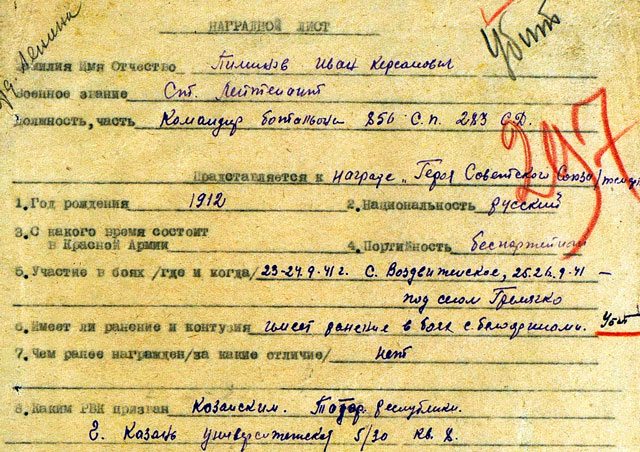 НАГРАДНОЙ ЛИСТ
Убит
Ленина
Фамилия Имя Отчество Иван
Военное звание Ст. Лейтенант
Должность, часть Командир батальона 856 С.П. 283 С.Д.
297
Представляется к награде „Героя Советского Союза/
1. Год рождения 1912 2. Национальность русский
3. С какого времени состоит
в Красной Армии 4. Портийность беспартейный
5. Участие в боях /где и когда/ 23-24.9-41г. С. Воздвиженское, 25.26.9-41 —
под селом Гремячко
6. Имеет ли ранение и контузия имеет ранение в боях с белофинами. Убит
7. Чем ранее награжден/за какие отличие/ нет
8. Каким РВК призван Казанским. Татар. республики.
г. Казань университетская 5/30 кв. 8.